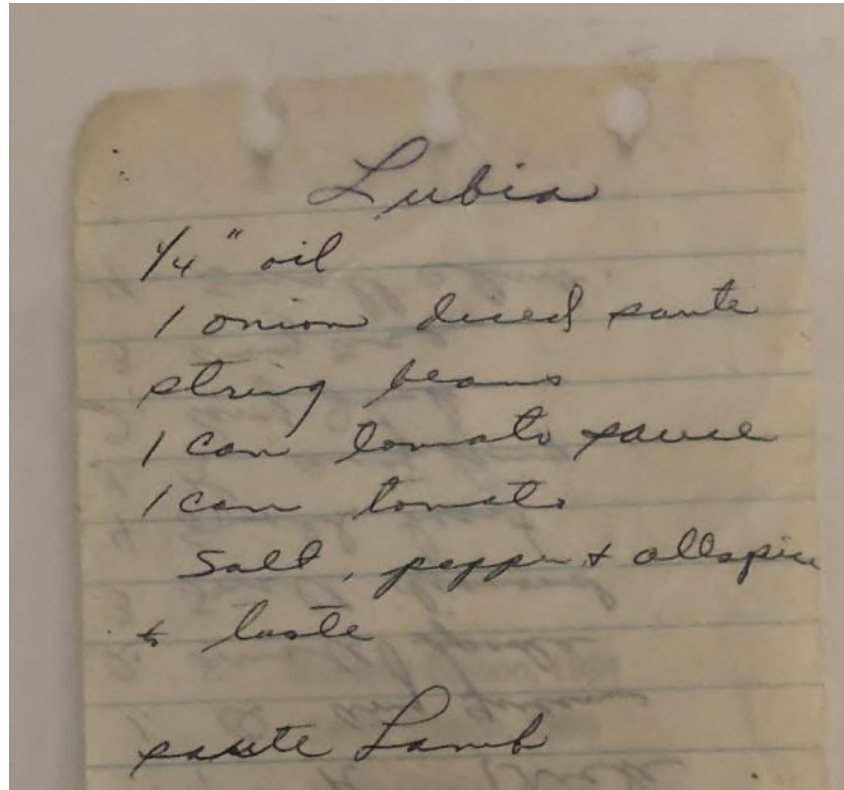 Lubia
1/4" oil
1 onion diced saute
string beans
1 can tomato sauce
1 can tomato
Salt, pepper & allspice
to taste
saute Lamb